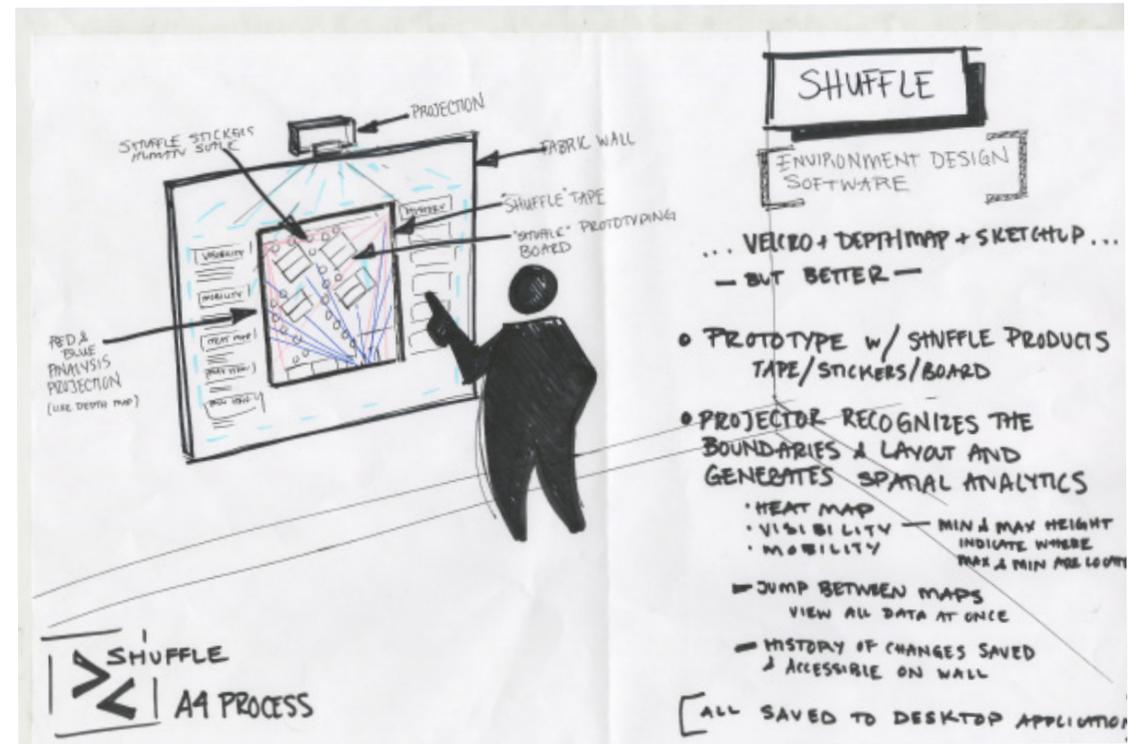 PROJECTION
SHUFFLE STICKERS
HUMAN SCALE
FABRIC WALL
"SHUFFLE" TAPE
"SHUFFLE" PROTOTYPING
BOARD
HISTORY
VISIBILITY
MOBILITY
HEAT MAP
RED &
BLUE
ANALYSIS
PROJECTION
(LIKE DEPTH MAP)
SHUFFLE
A4 PROCESS
SHUFFLE
ENVIRONMENT DESIGN
SOFTWARE
... VELCRO + DEPTHMAP + SKETCHUP ...
— BUT BETTER —
• PROTOTYPE W/ SHUFFLE PRODUCTS
TAPE/STICKERS/BOARD
• PROJECTOR RECOGNIZES THE
BOUNDARIES & LAYOUT AND
GENERATES SPATIAL ANALYTICS
• HEAT MAP
• VISIBILITY — MIN & MAX HEIGHT
INDICATE WHERE
MAX & MIN ARE LOCAT
• MOBILITY
— JUMP BETWEEN MAPS
VIEW ALL DATA AT ONCE
— HISTORY OF CHANGES SAVED
& ACCESSIBLE ON WALL
[ALL SAVED TO DESKTOP APPLICATION